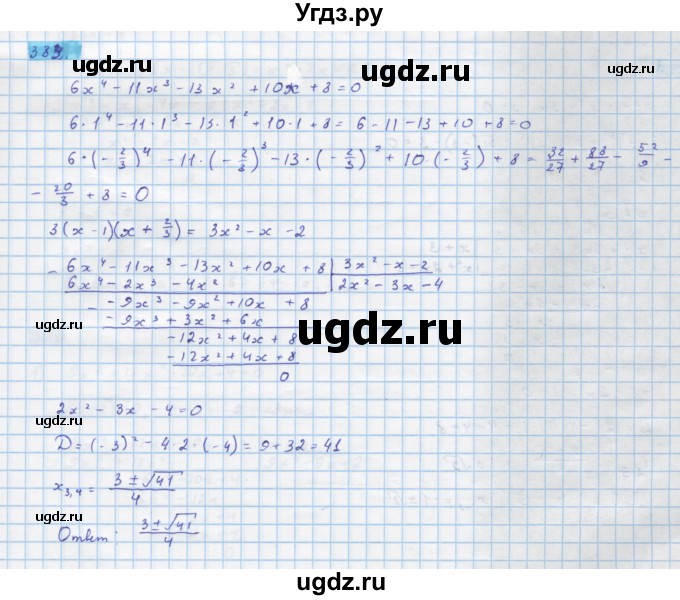 Угдз.ру
383.
ugdz.ru
ugdz.ru
6x⁴ - 11x³ - 13x² + 10x + 8 = 0
ugdz.ru
6·1⁴ - 11·1³ - 13·1² + 10·1 + 8 = 6 - 11 - 13 + 10 + 8 = 0
6·(-2/3)⁴ - 11·(-2/3)³ - 13·(-2/3)² + 10(-2/3) + 8 = 32/27 + 88/27 - 52/9 -
ugdz.ru
- 20/3 + 8 = 0
3(x - 1)(x + 2/3) = 3x² - x - 2
- 6x⁴ - 11x³ - 13x² + 10x + 8 | 3x² - x - 2
6x⁴ - 2x³ - 4x² 2x² - 3x - 4
- - 9x³ - 9x² + 10x + 8
ugdz.ru
- 9x³ + 3x² + 6x
ugdz.ru
-12x² + 4x + 8
-12x² + 4x + 8
0
2x² - 3x - 4 = 0
ugdz.ru
D = (-3)² - 4·2·(-4) = 9 + 32 = 41
x₃,₄ = (3 ± √41)/4
ugdz.ru
Ответ: (3 ± √41)/4
ugdz.ru